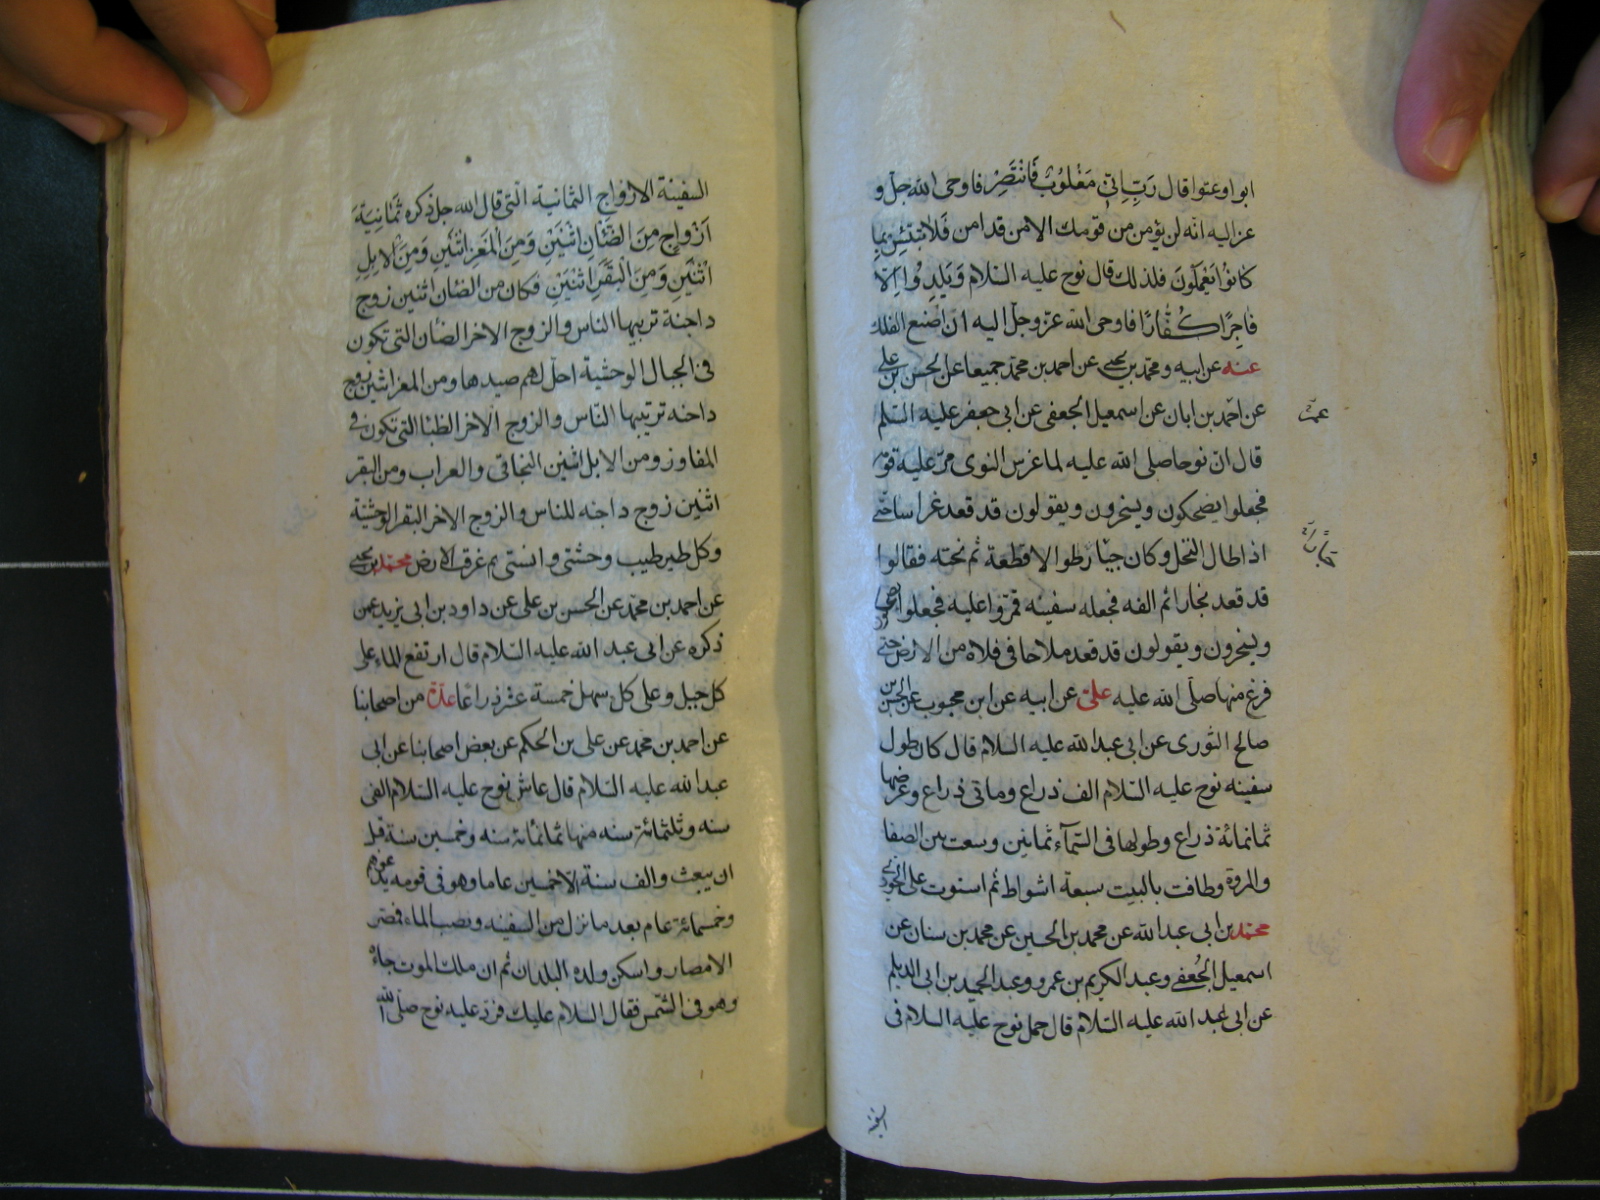 ابوا وعتوا قال رَبِّ اِنّى مَغْلُوبٌ فَانْتَصِرْ فاوحى الله جلّ و
عز اليه انه لن يؤمن من قومك الا من قد امن فَلاتبتئِس بِما
كانوُا يَعْمَلُونَ فلذلك قال نوح عليه السلام وَيَلِدوُا اِلاّ
فاجِرًا كَفّارًا فاوحى الله عزّ وجلّ اليه ان اصْنع الفلك
عنه عن ابيه ومحمد بن يحيى عن احمد بن محمّد جميعا عن الحسن بن على
عن احمد بن ابان عن اسمعيل الجعفى عن ابى جعفر عليه السّلم
عمر
قال انّ نوحا صلى الله عليه لما غرس النوى مرّ عليه قومه
فجعلوا يضحكون ويسخرون ويقولون قد قعد غراسا حتّى
اذا طال النخل وكان جبّارا طوا لا قطعة ثم نحته فقالوا
جبّارًا
قد قعد نجارا ثم الفه فجعله سفينه فمرّوا عليه فجعلوا يضحكون
ويسخرون ويقولون قد قعد ملاحا فى فلاة من الارض حتى
فرغ منها صلّى الله عليه علىّ عن ابيه عن ابن محبوب عن الحسن بن
صالح الثورى عن ابى عبد الله عليه السلام قال كان طول
سفينه نوح عليه السّلام الف ذراع وماتى ذراع وعرضها
ثمانمائة ذراع وطولها فى السّمآء ثمانين وسعت بين الصفا
والمروة وطافت بالبيت سبعة اشواط ثم استوت على الجودى
محمّد بن ابى عبد الله عن محمد بن الحسين عن محمد بن سنان عن
اسمعيل الجُعفى وعبد الكريم بن عمرو وعبد الحميد بن ابى الديلم
عن ابى عبد الله عليه السّلام قال حمل نوح عليه السلام فى
السفينة
السفينة الازواج الثمانية الّتى قال الله جل ذكره ثَمانِيَةَ
اَزْواجٍ مِنَ الضَّئَانِ اثْنَيْنِ وَمِنَ الْمَعزِ اثْنَيْنِ وَمِنَ الاِبِلِ
اثْنَيْنِ وَمِنَ الْبَقَرِ اثْنَيْنِ فكان من الضئان اثنين زوج
داجنة تربيها الناس والزوج الاخر الضئان التى تكون
فى الجبال الوحشية احلّ لهم صيدها ومن المعز اثنين زوج
داجنه تربيها النّاس والزوج الاخر الظبا التى تكون فى
المفاوز ومن الابل اثنين البخاتى والعراب ومن البقر
اثنين زوج داجنه للناس والزوج الاخر البقر الوحشيّة
وكل طير طيب وحشتى وانستى ثم غرقت الارض محمّد بن يحيى
عن احمد بن محمّد عن الحسن بن على عن داود بن ابى يزيد عمن
ذكره عن ابى عبد الله عليه السّلام قال ارتفع الماء على
كل جبل وعلى كل سهل خمسة عشر ذراعًا عدّة من اصحابنا
عن احمد بن محمد عن على بن الحكم عن بعض اصحابنا عن ابى
عبد الله عليه السّلام قال عاش نوح عليه السّلام الفى
سنه وثلثمائة سنه منها ثمانمائة سنه وخمسين سنة قبل
ان يبعث والف سنة الاخمسين عاما وهو فى قومه يدعوهم
وخمسمائة عام بعد ما نزل من السفينه ونضب الماء فمصّر
الامصار واسكن ولده البلدان ثم ان ملك الموت جاءه
وهو فى الشمس فقال السلام عليك فردّ عليه نوح صلّى الله